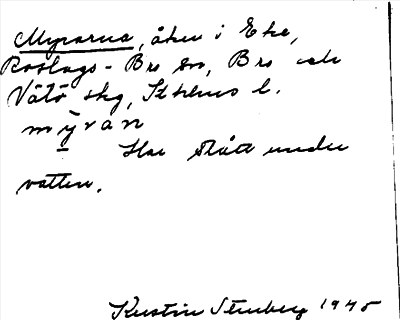 Myrarna, åker i Eke,
Roslags-Bro sn, Bro och
Vätö skg, Sthlms l.
mỳran
Har stått under
vatten.
Kerstin Stenberg 1945